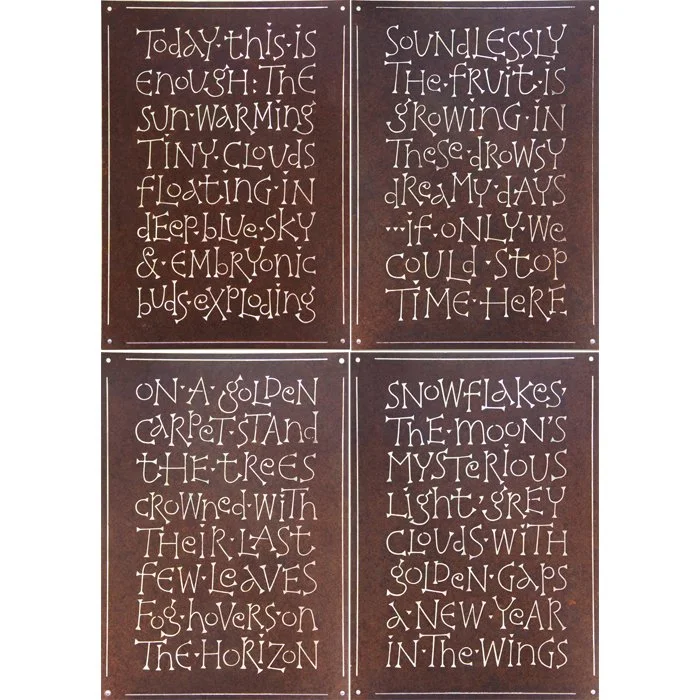 Today·this·is
enough: The
sun·warming
tiny·clouds
floating·in
deep·blue·sky
& embryonic
buds·exploding
Soundlessly
The·fruit·is
growing·in
these·drowsy
dreamy·days
...if·only·we
could·stop
time·here
On·a·golden
carpet·stand
the·trees
crowned·with
their·last
few·leaves
Fog·hovers·on
the·horizon
Snowflakes,
the·moon's
mysterious
light, grey
clouds·with
golden·gaps
a·new·year
in·the·wings